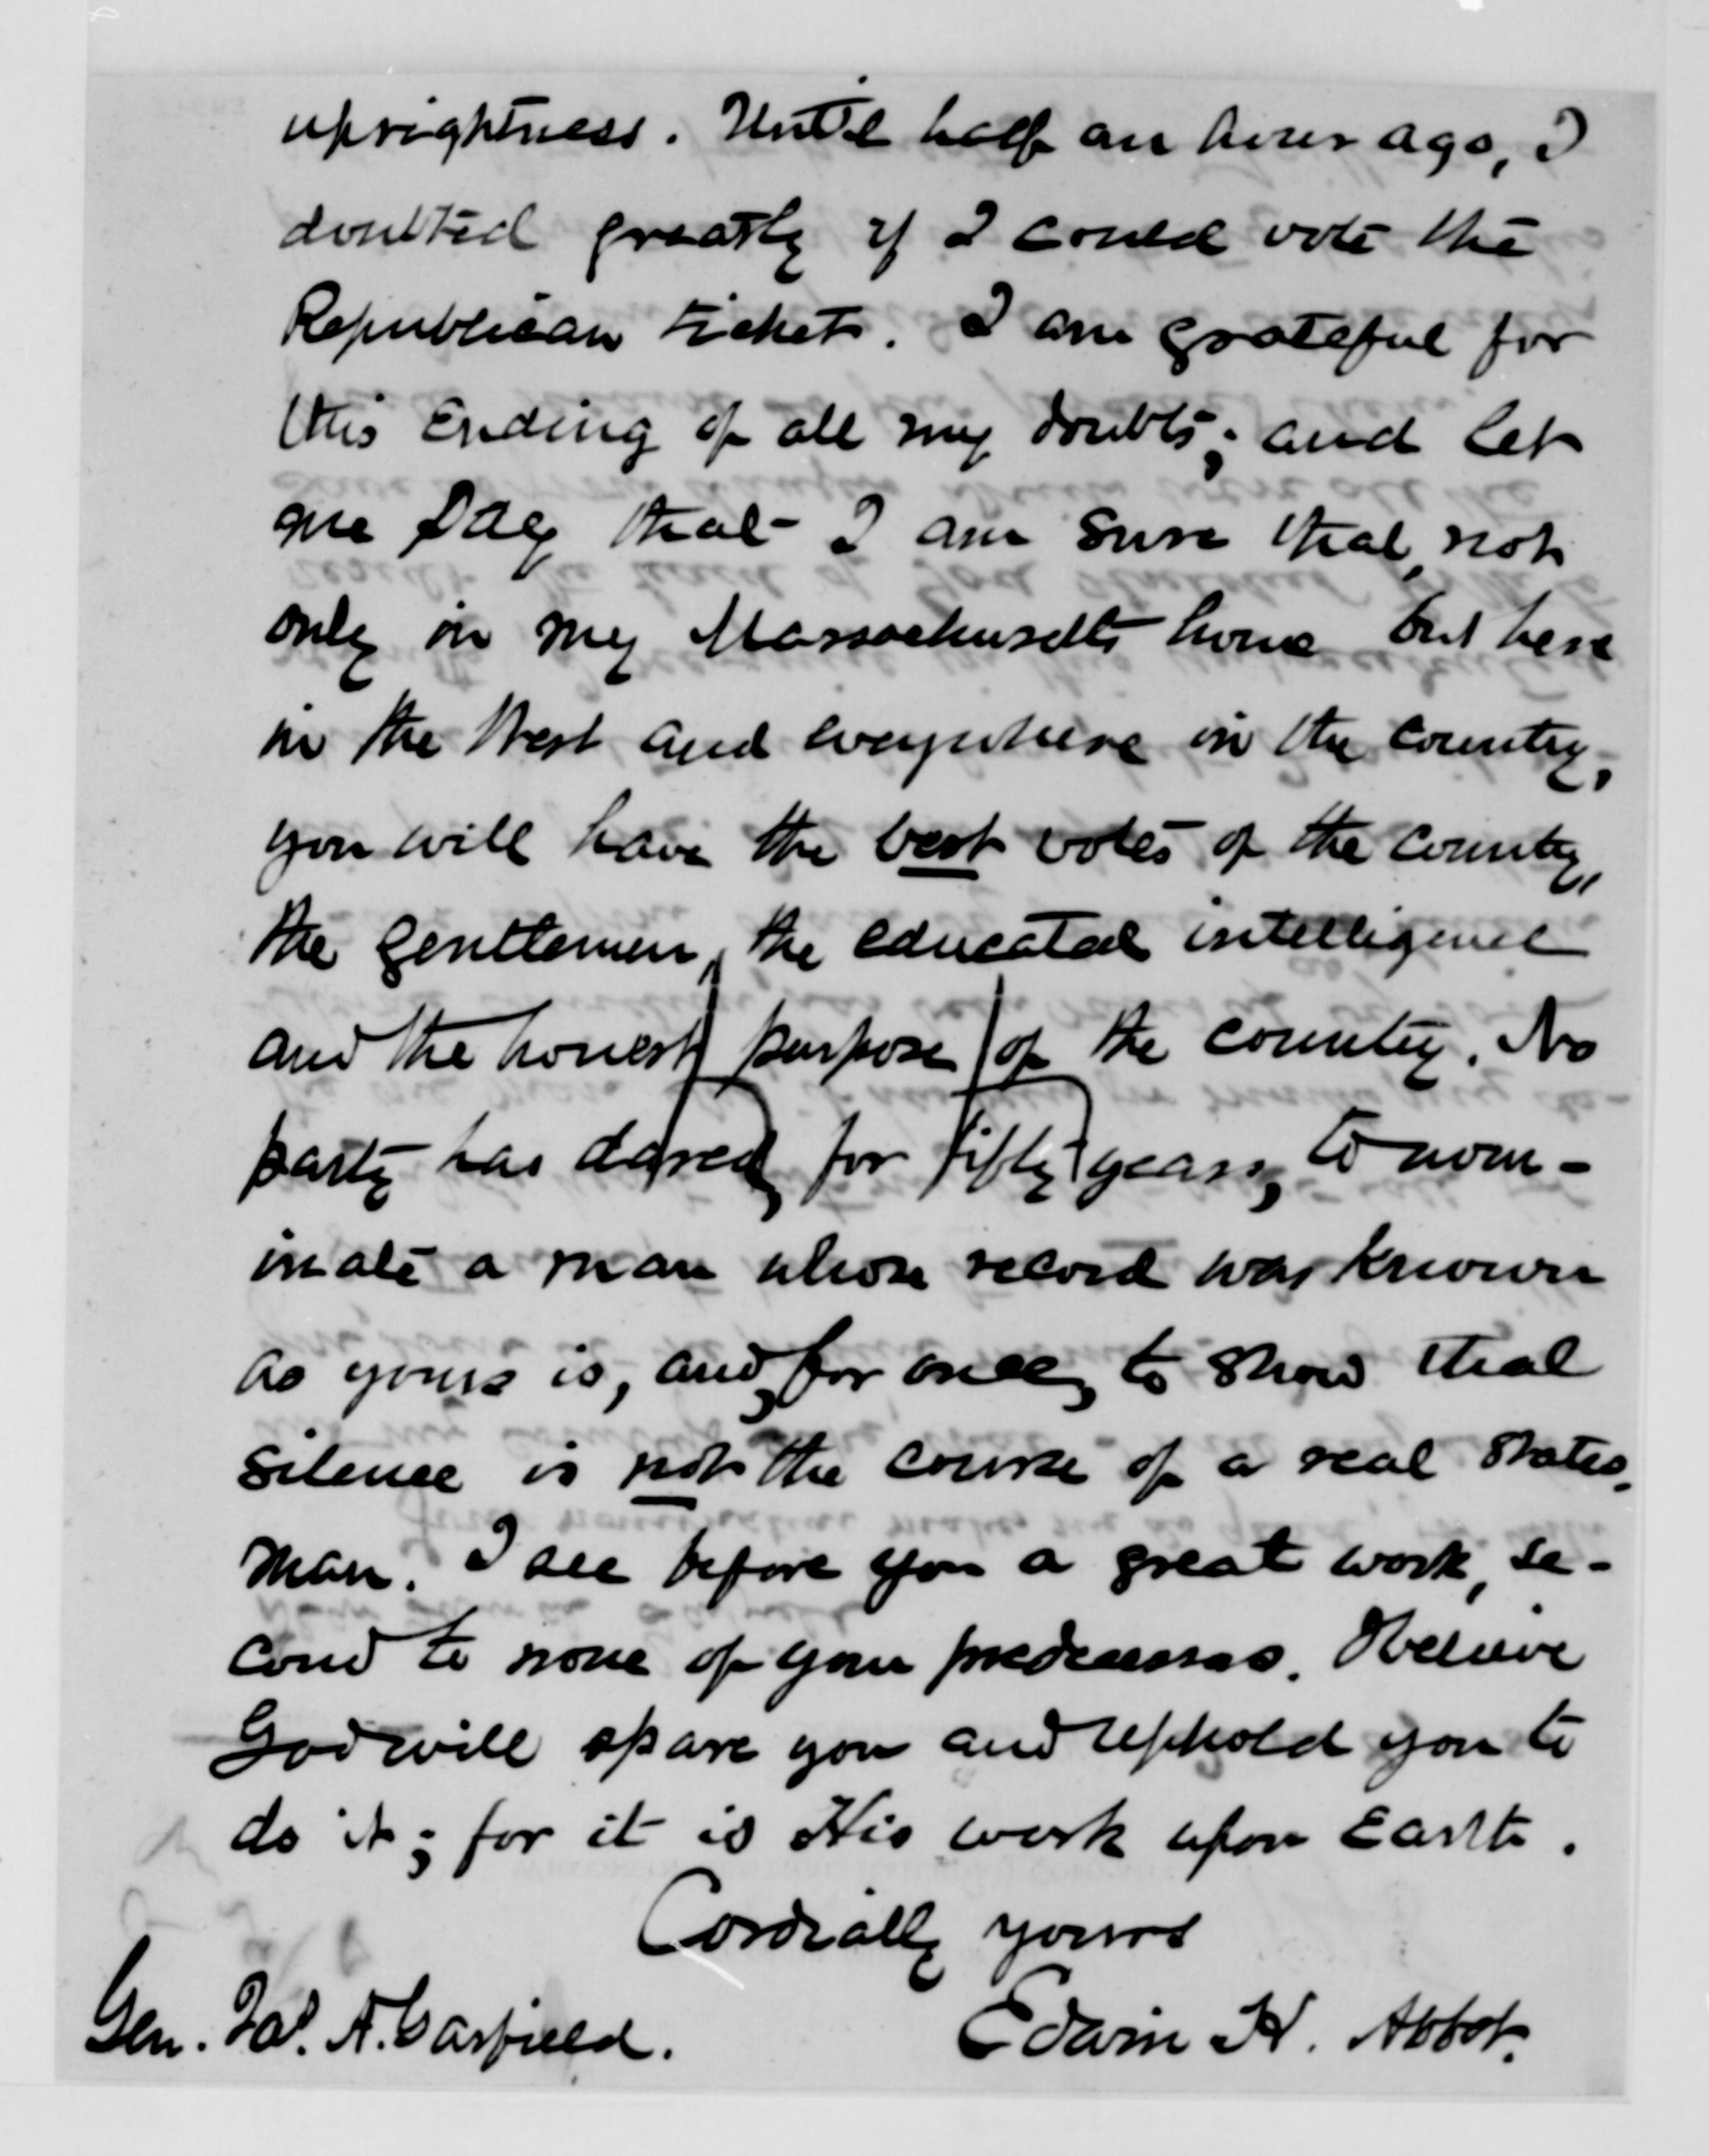 uprightness. Until half an hour ago, I
doubted greatly if I could vote the
Republican ticket. I am grateful for
this ending of all my doubts; and let
me say that I am sure that, not
only in my Massachusetts home but here
in the West and everywhere in the country,
you will have the best votes of the country,
the gentlemen, the educated intelligence
and the honest purpose of the country. No
party has dared, for fifty years, to nom-
inate a man whose record was known
as yours is, and, for once, to show that
silence is not the course of a real states-
man. I see before you a great work, se-
cond to none of your predecessors. I believe
God will spare you and uphold you to
do it; for it is His work upon Earth.
Cordially yours
Edwin H. Abbot.
Gen. Jas. A. Garfield.